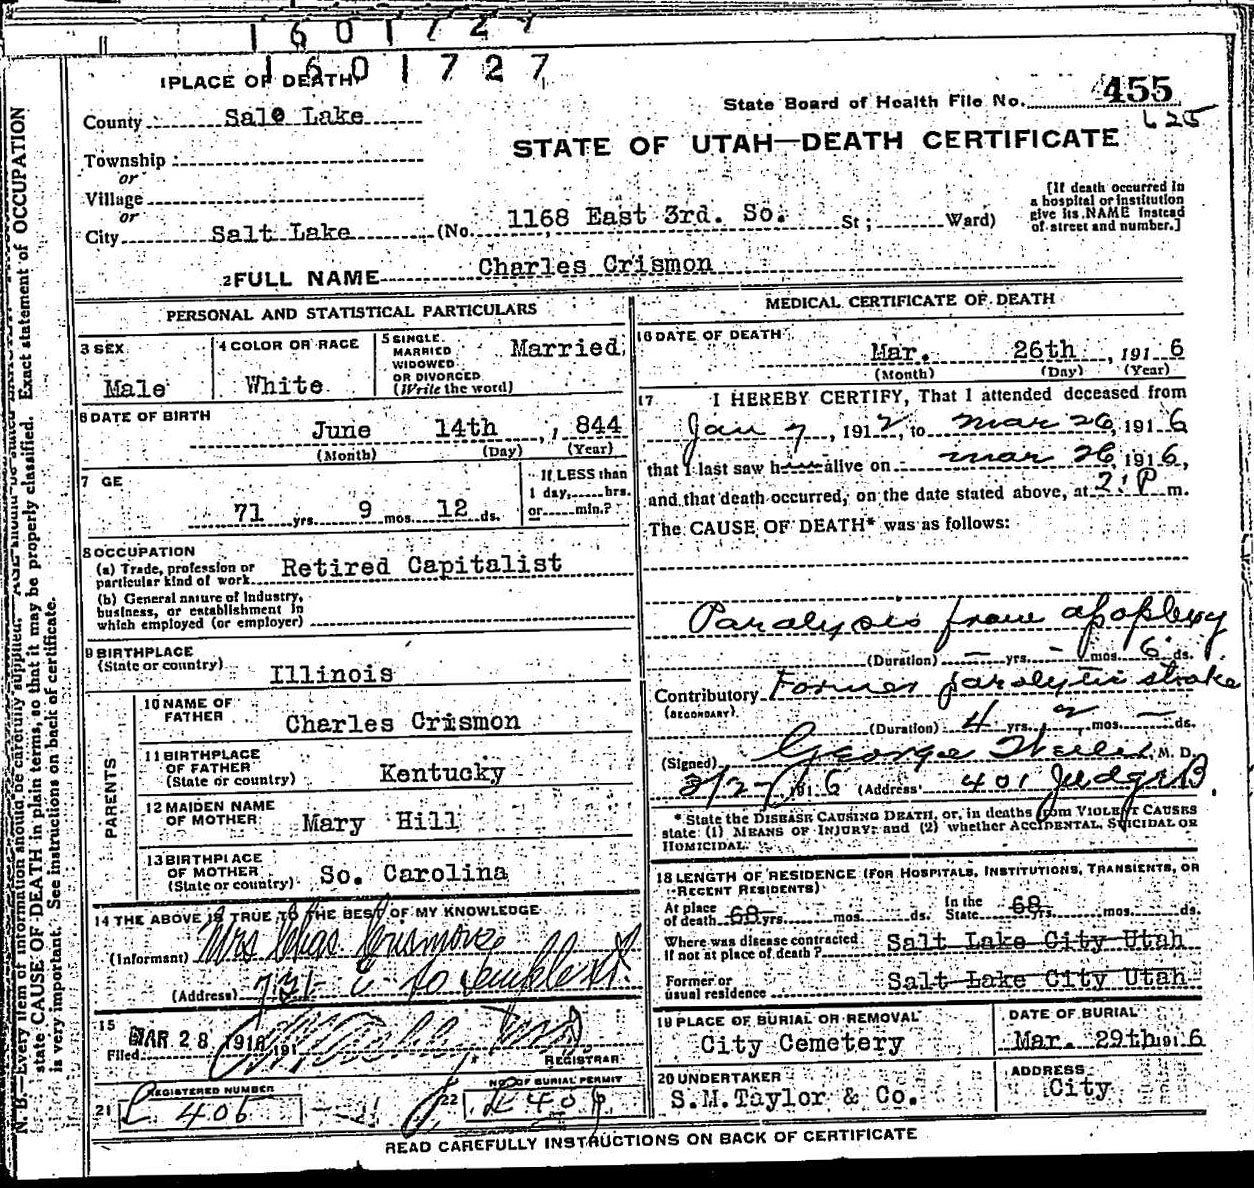 1 6 0 1 7 2 7
1 6 0 1 7 2 7
1 PLACE OF DEATH
County Sale Lake
Township
or
Village
or
City Salt Lake (No. 1168 East 3rd. So. St; Ward)
State Board of Health File No. 455
625
STATE OF UTAH—DEATH CERTIFICATE
[If death occurred in
a hospital or institution
give its NAME instead
of street and number.]
2 FULL NAME Charles Crismon
PERSONAL AND STATISTICAL PARTICULARS
3 SEX
Male
4 COLOR OR RACE
White
5 SINGLE
MARRIED
WIDOWED
OR DIVORCED
(Write the word)
Married
6 DATE OF BIRTH
June 14th , 1 844
(Month) (Day) (Year)
7 GE
71 yrs. 9 mos. 12 ds.
If LESS than
1 day, hrs.
or min.?
8 OCCUPATION
(a) Trade, profession or
particular kind of work Retired Capitalist
(b) General nature of Industry,
business, or establishment in
which employed (or employer)
9 BIRTHPLACE
(State or country)
Illinois
PARENTS
10 NAME OF
FATHER Charles Crismon
11 BIRTHPLACE
OF FATHER
(State or country) Kentucky
12 MAIDEN NAME
OF MOTHER Mary Hill
13 BIRTHPLACE
OF MOTHER
(State or country) So. Carolina
14 THE ABOVE IS TRUE TO THE BEST OF MY KNOWLEDGE
(Informant) Mrs Chas. Crismon
(Address) So Temple St
15
Filed MAR 28 1916 191
REGISTRAR
REGISTERED NUMBER
21 C 405
NO. OF BURIAL PERMIT
22
MEDICAL CERTIFICATE OF DEATH
16 DATE OF DEATH
Mar. 26th , 191 6
(Month) (Day) (Year)
17 I HEREBY CERTIFY, That I attended deceased from
Jan 7 , 1912, to Mar 26, 191 6
that I last saw h alive on Mar 26 191 6,
and that death occurred, on the date stated above, at 2 P m.
The CAUSE OF DEATH* was as follows:
Paralysis from apoplexy
(Duration) — yrs. — mos. 6 ds.
Contributory Former paralytic stroke
(SECONDARY)
(Duration) 4 yrs. 2 mos. — ds.
(Signed) George M. D.
3/27 1916 (Address 401 Judge B.
* State the DISEASE CAUSING DEATH, or, in deaths from VIOLENT CAUSES
state (1) MEANS OF INJURY; and (2) whether ACCIDENTAL, SUICIDAL OR
HOMICIDAL.
18 LENGTH OF RESIDENCE (FOR HOSPITALS, INSTITUTIONS, TRANSIENTS, OR
RECENT RESIDENTS)
At place
of death 68 yrs. mos. ds. In the
State 68 yrs. mos. ds.
Where was disease contracted
If not at place of death? Salt Lake City Utah
Former or
usual residence Salt Lake City Utah
19 PLACE OF BURIAL OR REMOVAL
City Cemetery
DATE OF BURIAL
Mar. 29th 191 6
20 UNDERTAKER
S.M. Taylor & Co.
ADDRESS
City
READ CAREFULLY INSTRUCTIONS ON BACK OF CERTIFICATE
N. B.—Every item of information should be carefully supplied. AGE should be stated EXACTLY
state CAUSE OF DEATH in plain terms, so that it may be properly classified. Exact statement of OCCUPATION
is very important. See instructions on back of certificate.